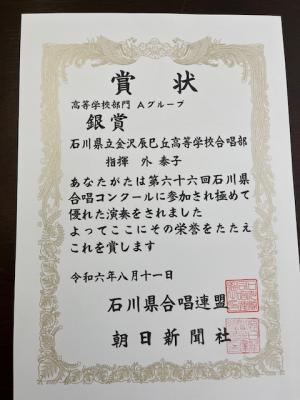 賞状
高等学校部門 Aグループ
銀賞
石川県立金沢辰巳丘高等学校合唱部
指揮 外 泰子
あなたがたは第六十六回石川県
合唱コンクールに参加され極めて
優れた演奏をされました
よってここにその栄誉をたたえ
これを賞します
令和六年八月十一日
石川県合唱連盟
朝日新聞社